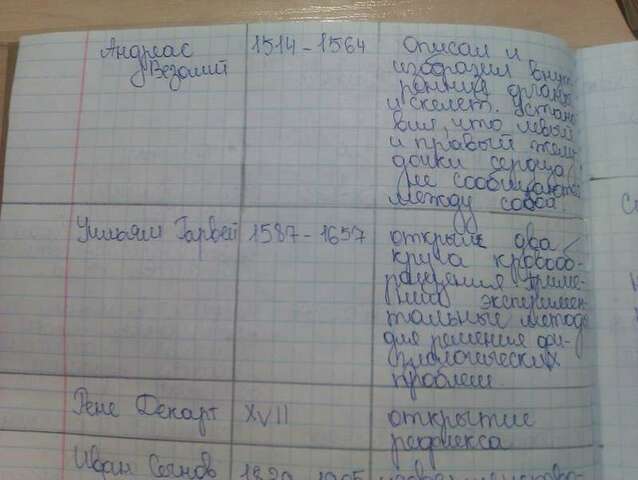 Андреас
Везалий
1514 – 1564
описал и
изобразил внут
ренние органы
и скелет. Устано
вил, что левый
и правый желу
дочки сердца
не сообщаются
между собой.
Уильям Гарвей
1587 – 1657
открыл два
круга кровооб-
ращения приме-
нил эксперимен-
тальные методы
для решения фи-
зиологических
проблем
Рене Декарт
XVII
открытие
рефлекса
Иван Сеченов